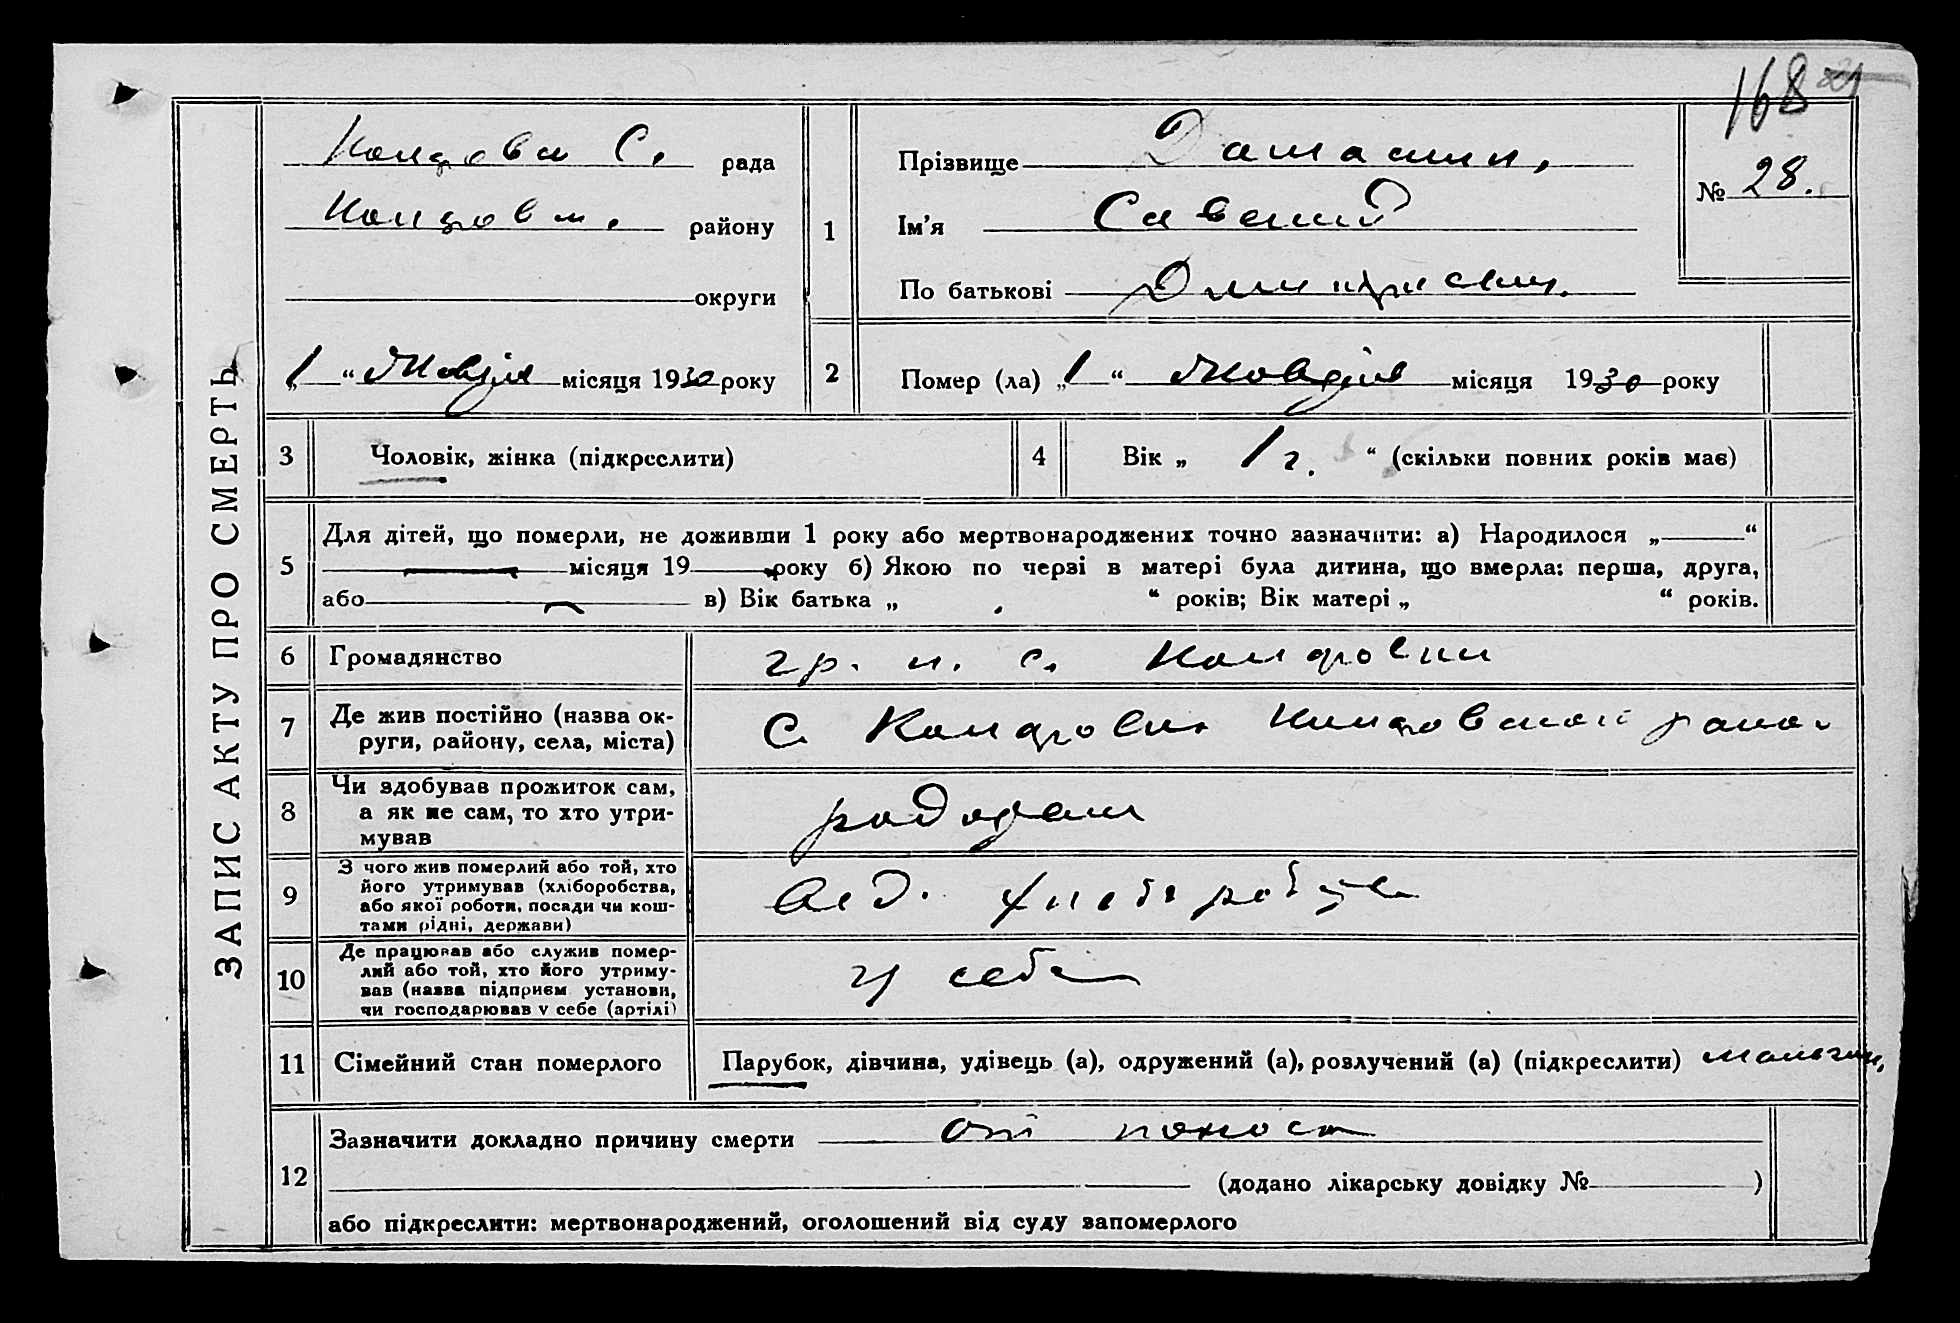 168
ЗАПИС АКТУ ПРО СМЕРТЬ
С. рада
району
округи
„1“ Жовтня місяця 1930 року
1
Прізвище
Ім’я Савелий
По батькові
№ 28.
2
Помер (ла) „1“ Жовтня місяця 1930 року
3
Чоловік, жінка (підкреслити)
4
Вік „ 1 г. “ (скільки повних років має)
5
Для дітей, що померли, не доживши 1 року або мертвонароджених точно зазначити: а) Народилося „ “
місяця 19 року б) Якою по черзі в матері була дитина, що вмерла: перша, друга,
або в) Вік батька „ “ років; Вік матері „ “ років.
6
Громадянство
гр. н. с.
7
Де жив постійно (назва ок-
руги, району, села, міста)
С.
8
Чи здобував прожиток сам,
а як не сам, то хто утри-
мував
9
З чого жив померлий або той, хто
його утримував (хліборобства,
або якої роботи, посади чи кош-
тами рідні, держави)
10
Де працював або служив помер-
лий або той, хто його утриму-
вав (назва підприєм. установи,
чи господарював у себе (артілі)
у себе
11
Сімейний стан померлого
Парубок, дівчина, удівець (а), одружений (а), розлучений (а) (підкреслити)
12
Зазначити докладно причину смерти от поноса
(додано лікарську довідку № )
або підкреслити: мертвонароджений, оголошений від суду запомерлого